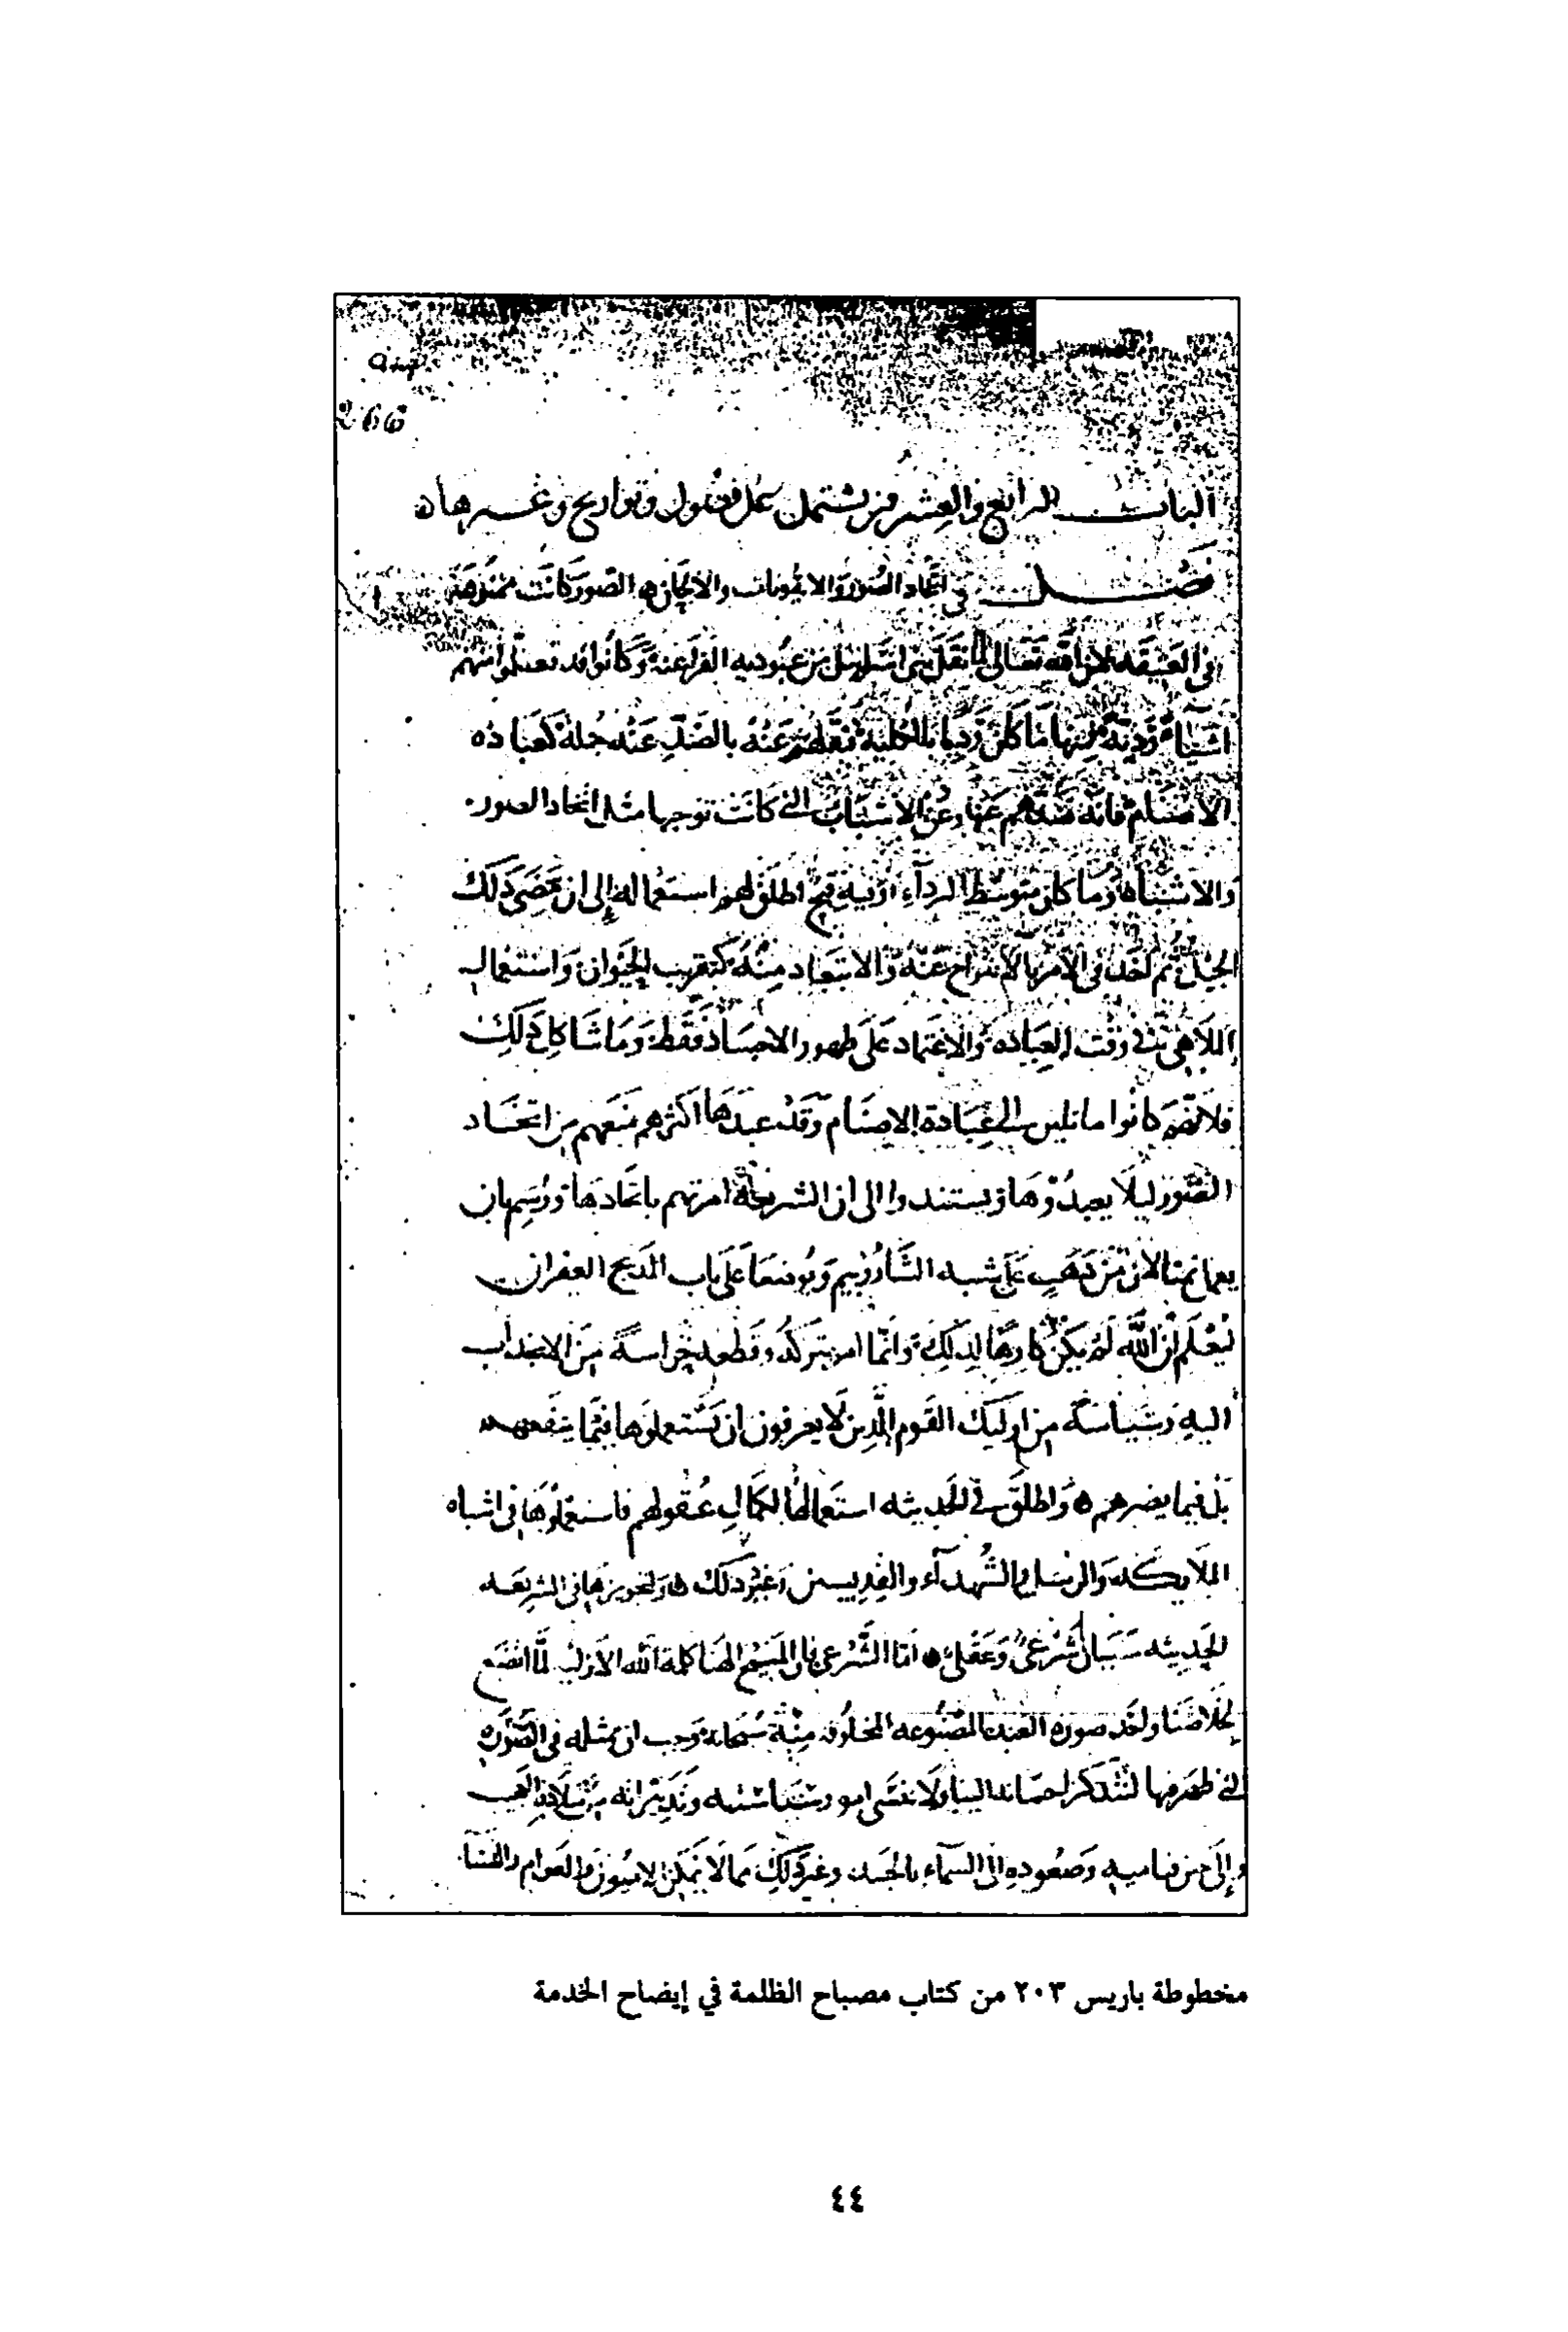 266
الباب الرابع والعشرون يشتمل على فصول وتواريخ وغيرها ه
فصل في اتخاذ الصور والايقونات والانجان ه الصور كانت مكروهة
في العتيقة لان الله تعالى لما نقل بني اسرائيل من عبودية الفراعنة وكانوا قد تعلموا منهم
اشياء ردية منها ما كان رديا بالكلية فنقلهم عنه بالضد عنه جملة كعباده
الاصنام فانه صدهم عنها وعن الاسباب التي كانت توجبها مثل اتخاذ الصور
والاشباه وما كان متوسط الرداءة اطلق لهم استعماله الى ان مضى ذلك
الجيل ثم اخذ في الامر بالانتزاح عنه والابتعاد منه كتقريب الحيوان واستعمال
الملاهي في وقت العباده والاعتماد على طهور الاجساد فقط وما شاكل ذلك
فلانهم كانوا مائلين الى عبادة الاصنام وقد عبدها اكثرهم منعهم من اتخاد
الصور ليلا يعبدوها ويستندوا الى ان الشريعة امرتهم باتخادها ورسم بان
يعمل تمثالان من ذهب على شبه الشاروبيم ويوضعا على باب المذبح الغفران
ليعلم ان الله لم يكن كارها لذلك وانما امر بتركه وقطعه حراسة من الانجذاب
اليه وسياسة من اوليك القوم الذين لا يعرفون ان يستعملوها فيما ينفعهم
بل فيما يضرهم ه واطلق في الحديثه استعمالها لكمال عقولهم فاستعملوها في اشباه
الملايكه والرسل والشهداء والقديسين وغير ذلك ه ولتجويزها في الشريعه
الحديثه سببان شرعي وعقلي ه اما الشرعي فان المسيح الهنا كلمة الله الازلي لما اتضع
لخلاصنا واخد صورة العبد المصنوعه المخلوقه منه سبحانه وجب ان نمثله في الصوره
التي ظهر فيها لنتذكر احسانه الينا ولا ننسى امور سياسته وتدبيراته من ميلاده العجيب
والى حين قيامه وصعوده الى السماء بالجسد وغير ذلك مما لا يمكن الاميون والعوام والنسا
مخطوطة باريس ٢٠٣ من كتاب مصباح الظلمة في إيضاح الخدمة
٤٤